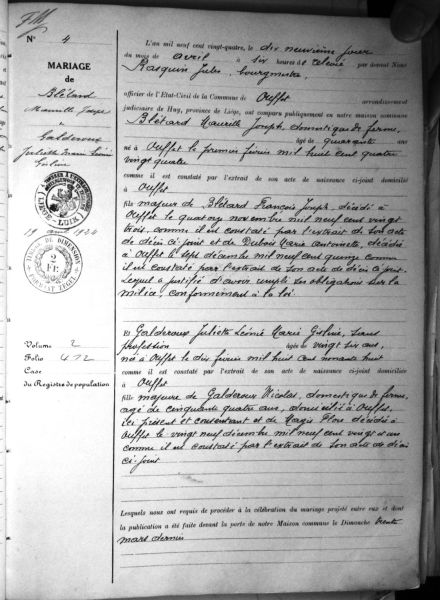 N° 4
MARIAGE
de
Blétard
Maurille Joseph
&
Galderoux
Juliette Marie Léonie
Gislaine
19 avril 1924
2
Fr.
Volume 2
Folio 412
Case
du Registre de population
L'an mil neuf cent vingt-quatre, le dix neuvième jour
du mois de avril à six heures de relevée par devant Nous
Rasquin Jules, bourgmestre,
officier de l'Etat-Civil de la Commune de Ouffet arrondissement
judiciaire de Huy, province de Liége, ont comparu publiquement en notre maison commune
Blétard Maurille Joseph, domestique de ferme,
âgé de quarante ans
né à Ouffet le premier février mil huit cent quatre
vingt quatre
comme il est constaté par l'extrait de son acte de naissance ci-joint domicilié
à Ouffet
fils majeur de Blétard François Joseph, décédé à
Ouffet le quatorze novembre mil neuf cent vingt
trois, comme il est constaté par l'extrait de son acte
de décès ci-joint et de Dubois Marie Antoinette, décédée
à Ouffet le sept décembre mil neuf cent quinze comme
il est constaté par l'extrait de son acte de décès ci-joint.
Lequel a justifié d'avoir rempli ses obligations sur la
milice, conformément à la loi.
Et Galderoux Juliette Léonie Marie Gislaine, sans
profession âgée de vingt six ans,
née à Ouffet le dix février mil huit cent nonante huit
comme il est constaté par l'extrait de son acte de naissance ci-joint domiciliée
à Ouffet
fille majeure de Galderoux Nicolas, domestique de ferme,
âgé de cinquante quatre ans, domicilié à Ouffet,
ici présent et consentant et de Magis Flore décédée à
Ouffet le vingt neuf décembre mil neuf cent vingt et un
comme il est constaté par l'extrait de son acte de décès
ci-joint
Lesquels nous ont requis de procéder à la célébration du mariage projeté entre eux et dont
la publication a été faite devant la porte de notre Maison commune le Dimanche trente
mars dernier